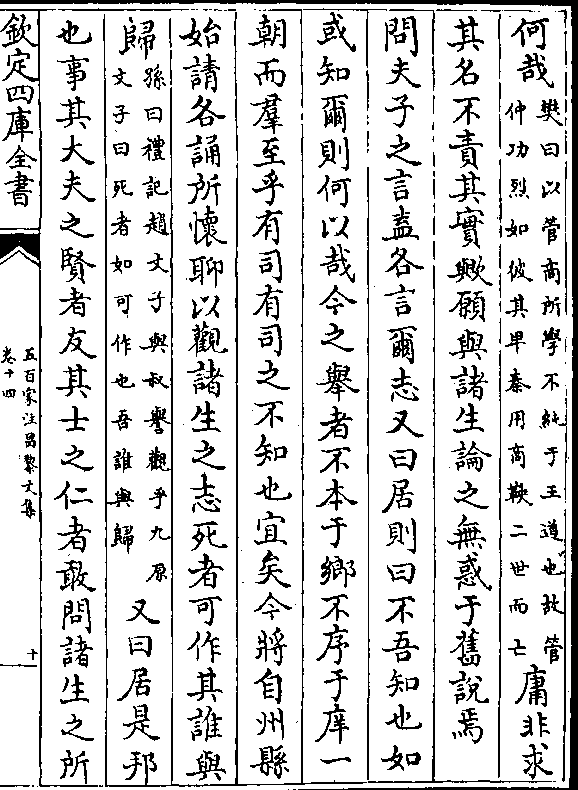 何哉
樊曰以管商所學不純于王道也故管
仲功烈如彼其卑秦用商鞅二世而亡
庸非求
其名不責其實歟願與諸生論之無惑于舊說焉
問夫子之言盍各言爾志又曰居則曰不吾知也如
或知爾則何以哉今之舉者不本于鄉不序于庠一
朝而羣至乎有司有司之不知也宜矣今將自州縣
始請各誦所懷聊以觀諸生之志死者可作其誰與
歸
孫曰禮記趙文子與叔譽觀乎九原
文子曰死者如可作也吾誰與歸
又曰居是邦
也事其大夫之賢者友其士之仁者敢問諸生之所
欽定四庫全書
五百家注昌黎文集
卷十四
十